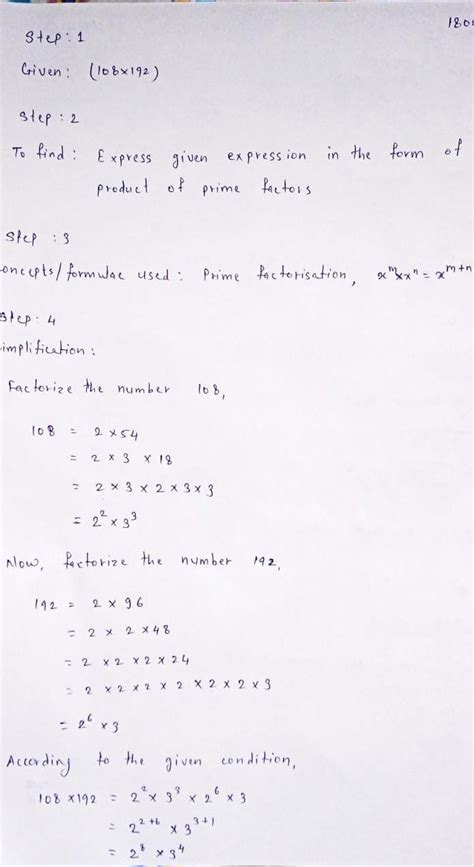 180
Step : 1
Given : (108×192)
Step : 2
To find : Express given expression in the form of
product of prime factors
Step : 3
oncepts/formulae used : Prime factorisation, x^m×x^n = x^{m+n}
Step : 4
implification :
Factorize the number 108,
108 = 2 × 54
= 2 × 3 × 18
= 2 × 3 × 2 × 3 × 3
= 2² × 3³
Now, factorize the number 192,
192 = 2 × 96
= 2 × 2 × 48
= 2 × 2 × 2 × 24
= 2 × 2 × 2 × 2 × 2 × 2 × 3
= 2⁶ × 3
According to the given condition,
108 × 192 = 2² × 3³ × 2⁶ × 3
= 2^{2+6} × 3^{3+1}
= 2⁸ × 3⁴